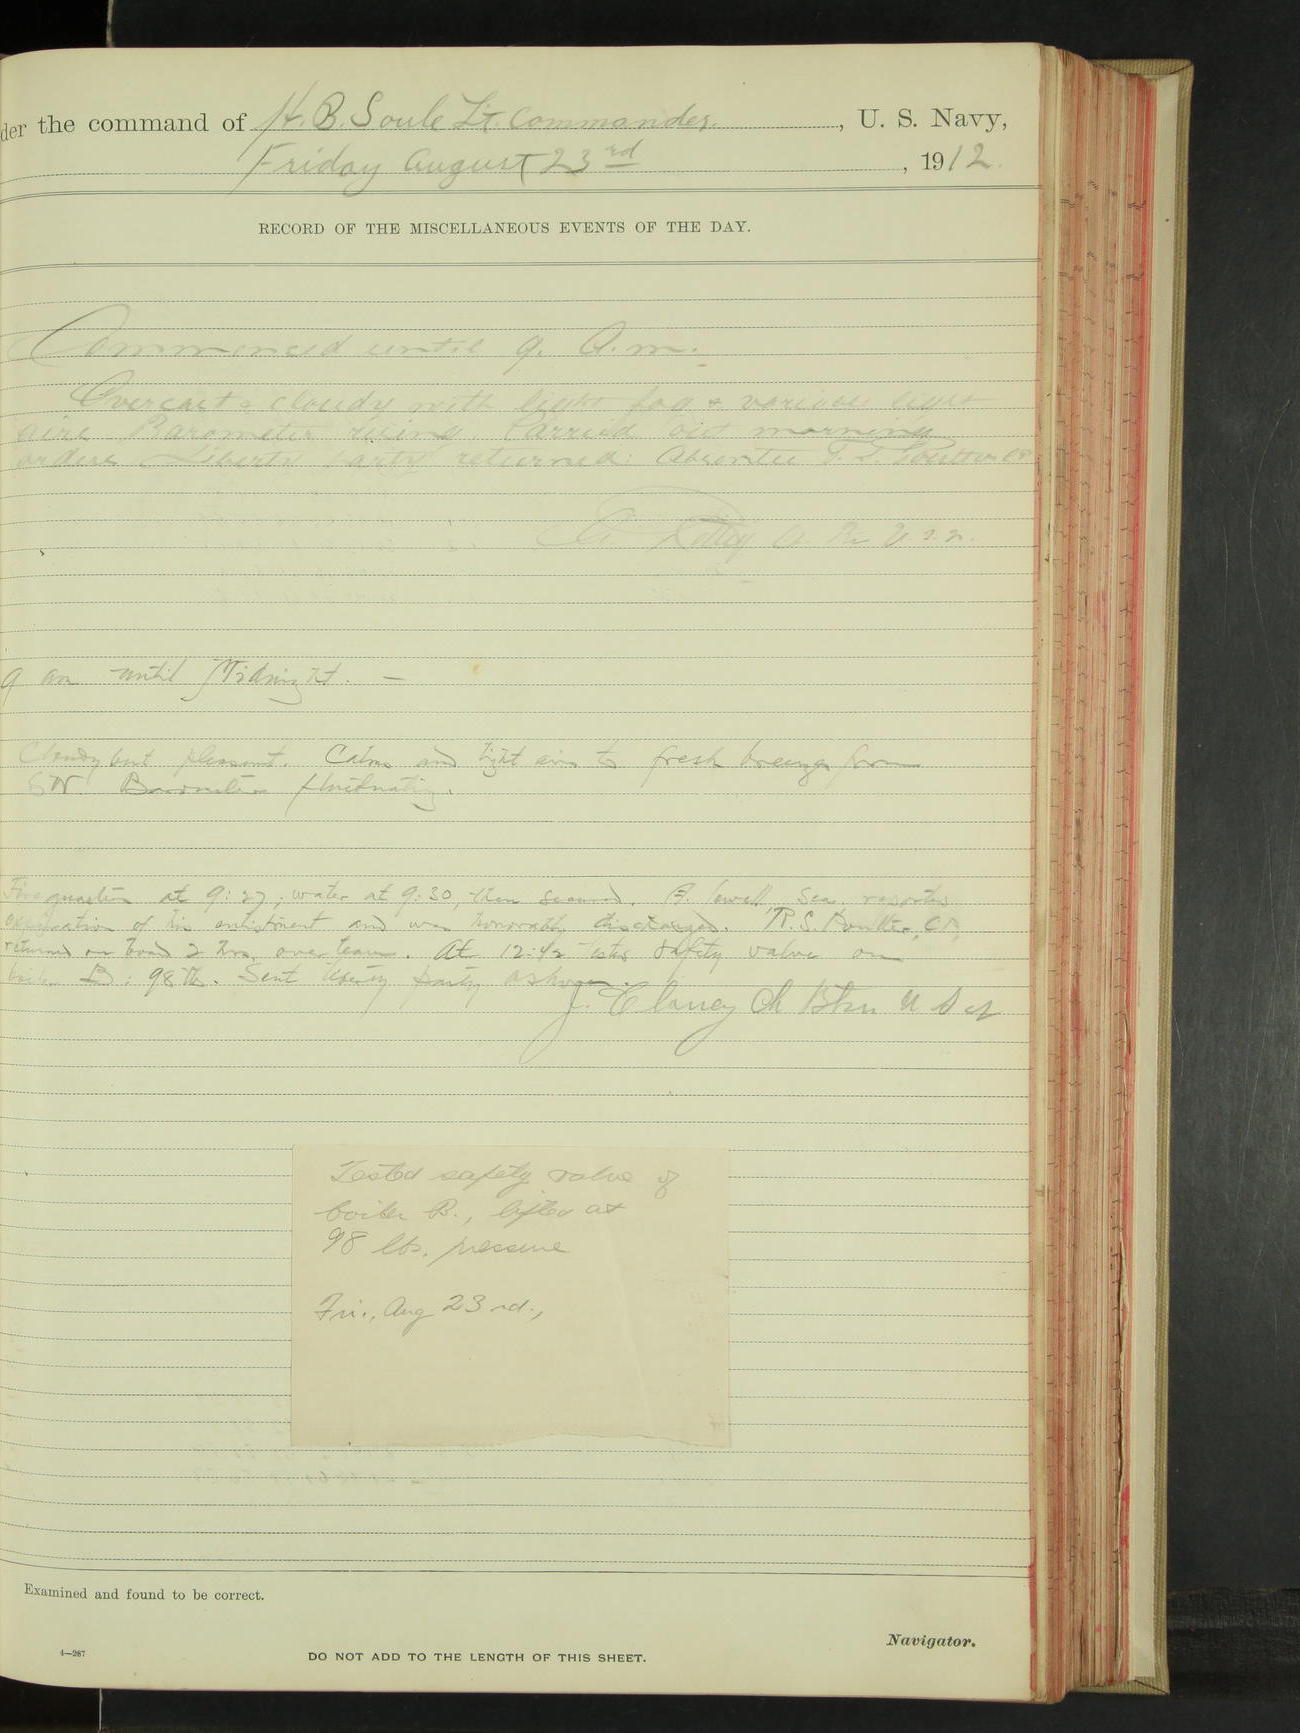 der the command of H. B. Soule Lt. Commander, U. S. Navy,
Friday August 23rd, 1912.
RECORD OF THE MISCELLANEOUS EVENTS OF THE DAY.
Commenced until 9. A.m.
Overcast & cloudy with light fog & various light
airs Barometer rising. Carried out morning
orders Liberty party returned: Absentee
U.S.N.
9 am until Midnight. —
Cloudy but pleasant. Calms and light airs to fresh breeze from
SW. Barometer fluctuating.
Fire quarters at 9:27, water at 9:30, then secured. Sea, reported
expiration of his enlistment and was honorably discharged. R. S.
returned on board 2 hrs. over leave. At 12:42 tested safety valve on
boiler B: 98 lb. Sent liberty party ashore.
J. Clancy Ch Btsn U S N
Tested safety valve of
boiler B., lifted at
98 lbs. pressure
Fri., Aug 23rd.,
Examined and found to be correct.
Navigator.
4—287
DO NOT ADD TO THE LENGTH OF THIS SHEET.